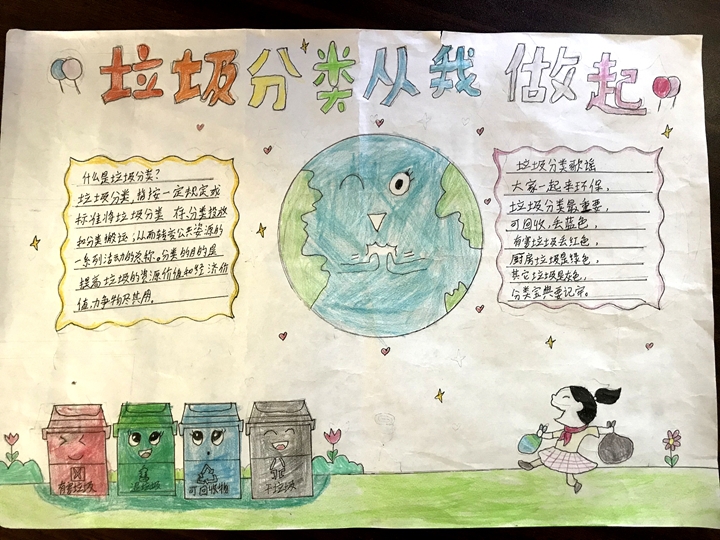 垃圾分类从我做起
什么是垃圾分类?
垃圾分类,指按一定规定或
标准将垃圾分类 存,分类投放
和分类搬运,从而转变公共资源的
一系列活动的总称。分类的目的是
提高垃圾的资源价值和经济价
值,力争物尽其用。
垃圾分类歌谣
大家一起来环保,
垃圾分类最重要,
可回收,丢蓝色,
有害垃圾丢红色,
厨房垃圾是绿色,
其它垃圾是灰色,
分类宝典要记牢。
有害垃圾
湿垃圾
可回收物
干垃圾